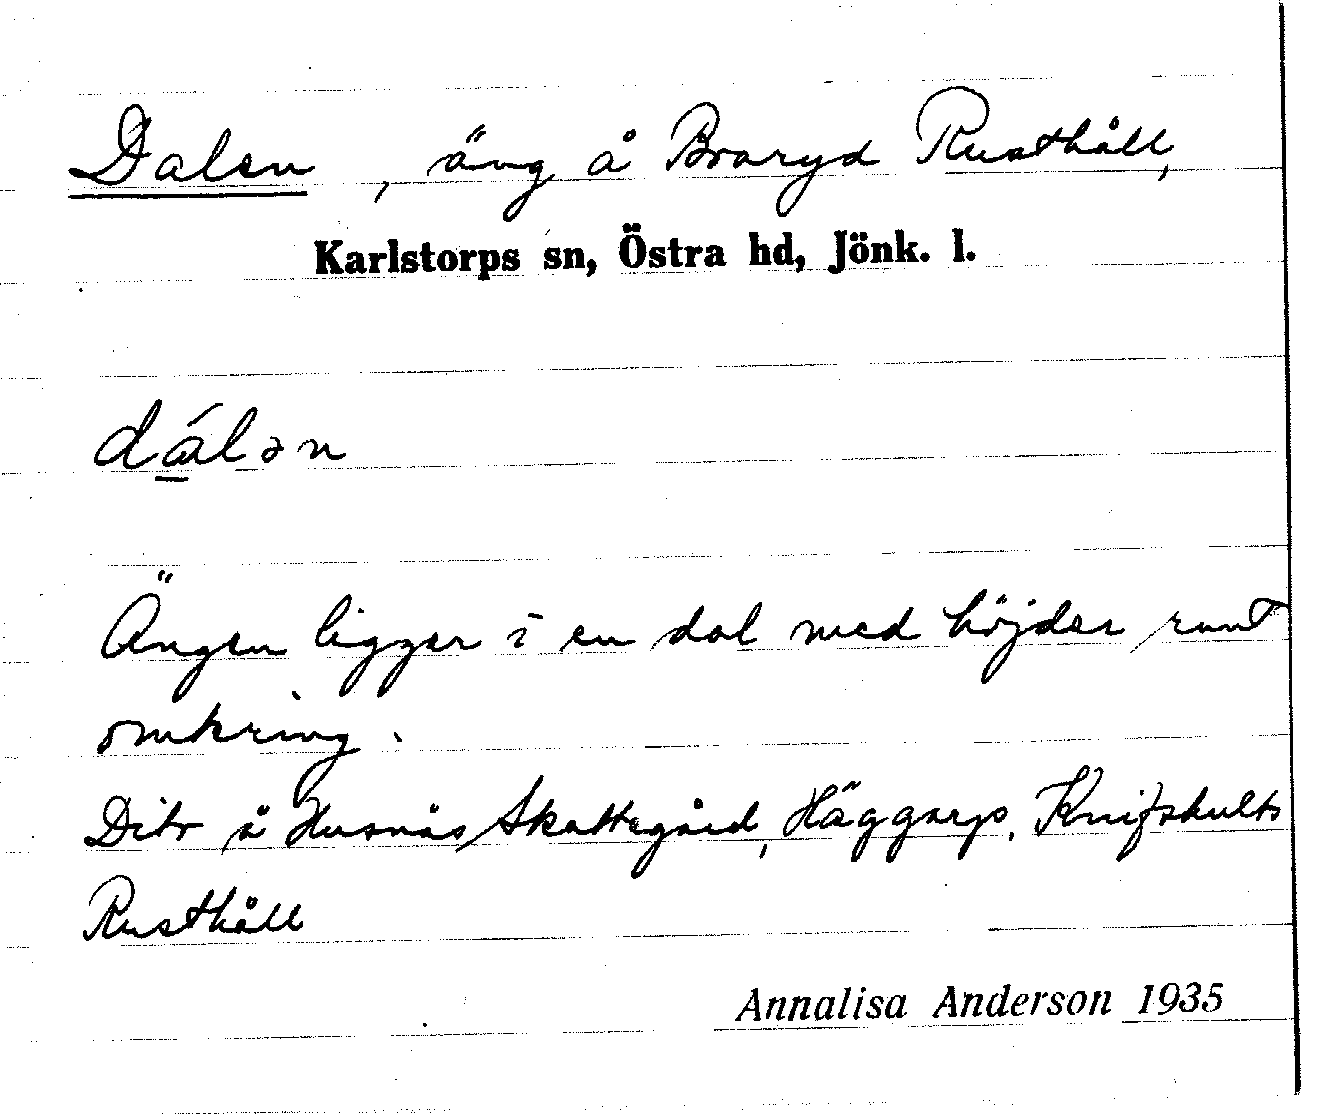 Dalen, äng å Braryd Rusthåll,
Karlstorps sn, Östra hd, Jönk. l.
dálən
Ängen ligger i en dal med höjder runt
omkring.
Dito å Husnäs Skattegård, Häggarp, Knifshults
Rusthåll
Annalisa Anderson 1935